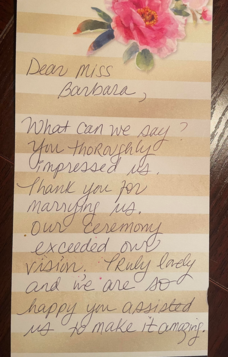 Dear Miss
Barbara,
What can we say?
You thoroughly
impressed us.
Thank you for
marrying us.
Our ceremony
exceeded our
vision. Truly lovely
and we are so
happy you assisted
us to make it amazing.